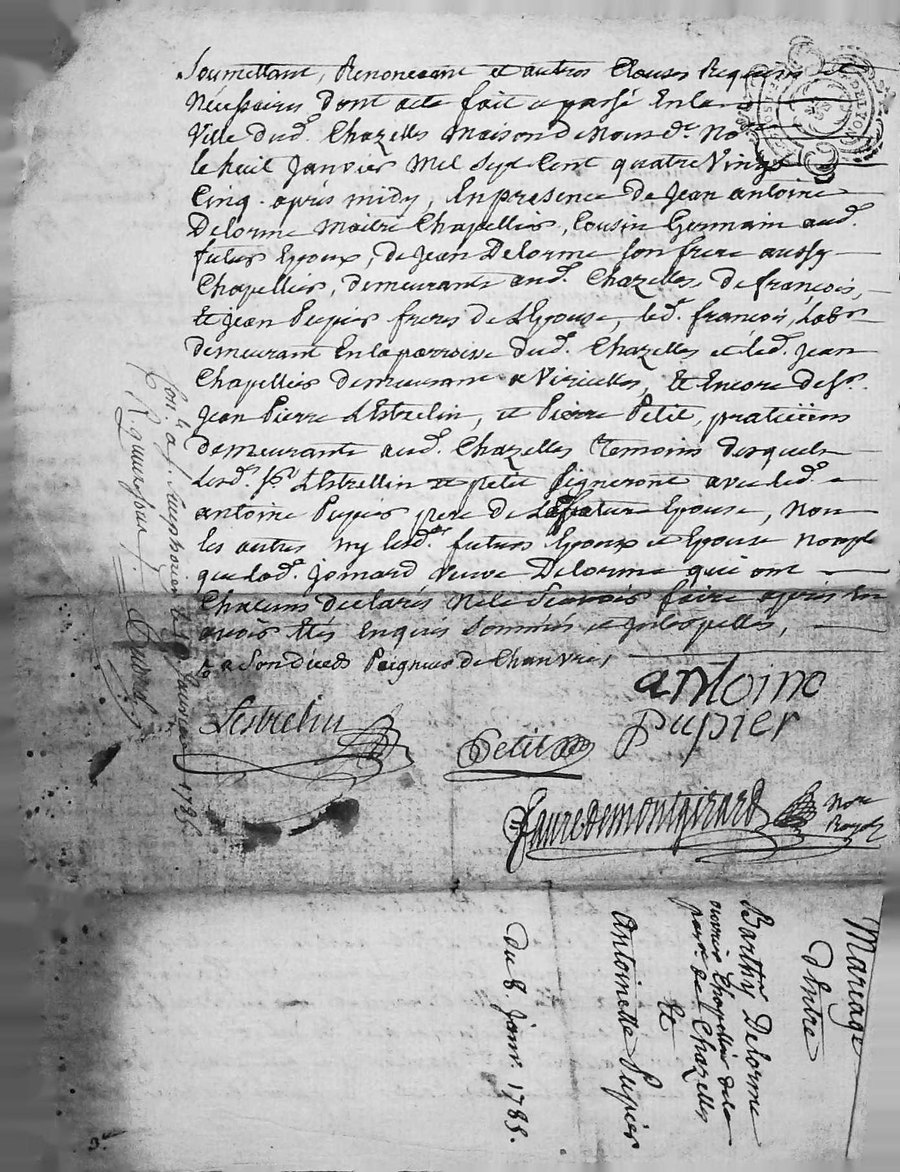 Soumettant, Renonceant et autres Clauses Requises et
Nécessaires dont acte fait et passé En la
Ville dud. Chazelles Maison de Nous d. No.re
le huit Janvier Mil Sept Cent quatre Vingt
Cinq après midy, En presence de Jean antoine
Delorme Maitre Chapellier, Cousin Germain aud.
futur Epoux, de Jean Delorme son frere aussy
Chapellier, demeurants aud. Chazelles, de françois,
Et Jean Pupier freres de L'Epouse, led. françois, Lab.r
demeurant En la parroisse dud. Chazelles et led. Jean
Chapellier demeurant a Viricelles, Et Encore de S.r
Jean Pierre Lestrelin, et Pierre Petit, praticiens
demeurants aud. Chazelles Temoins desquels
Lesd. S.rs Lestrellin et petit signeront avec led.
antoine Pupier pere de La future Epouse, Non
les autres ny lesd. futurs Epoux et Epouse Non plus
que lad. Jomard veuve Delorme qui ont
Chacuns declarés Ne le Scavoir faire après En
avoir Etés Enquis Sommés et Interpellés,
Peigneur de Chanvre,
antoine
pupier
Lestrelin
Petit
Faure de montgirard
Not.re
Royal
Con.lé a S.t Symphorien le Janvier 1785
R. quinze sous
Mariage
d'Entre
Barth.my Delorme
ouvrier Chapellier de la
par.sse de Chazelles
Et
Antoinette Pupier
du 8. janv. 1785.